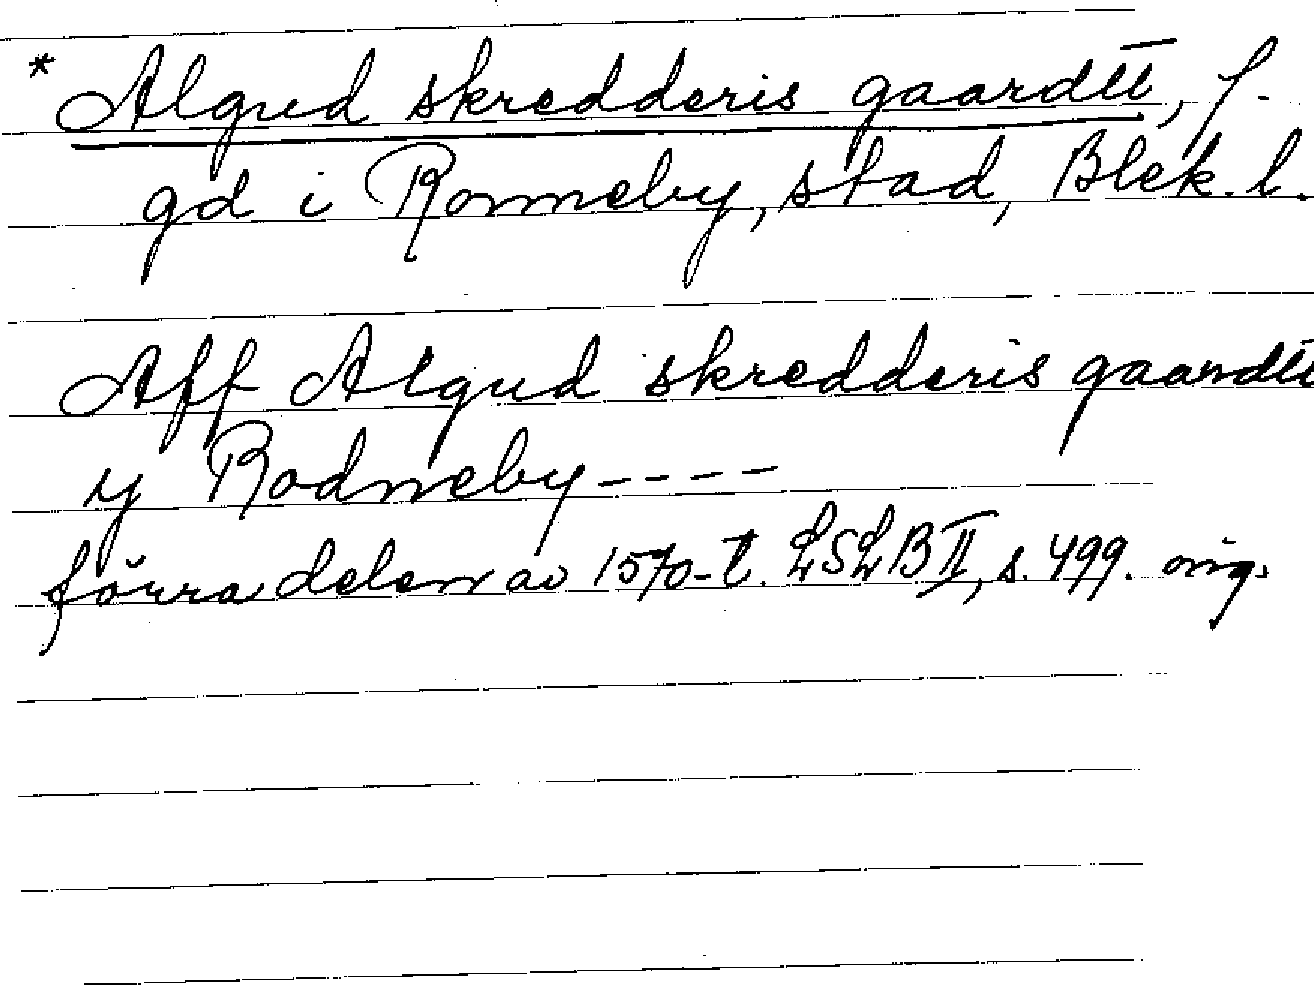 * Algud skredderis gaardtt, f.
gd i Ronneby, stad, Blek. l.
Aff Algud skredderis gaardtt
y Rodneby----
förra delen av 1570-t. LSLB II, s. 499. orig.